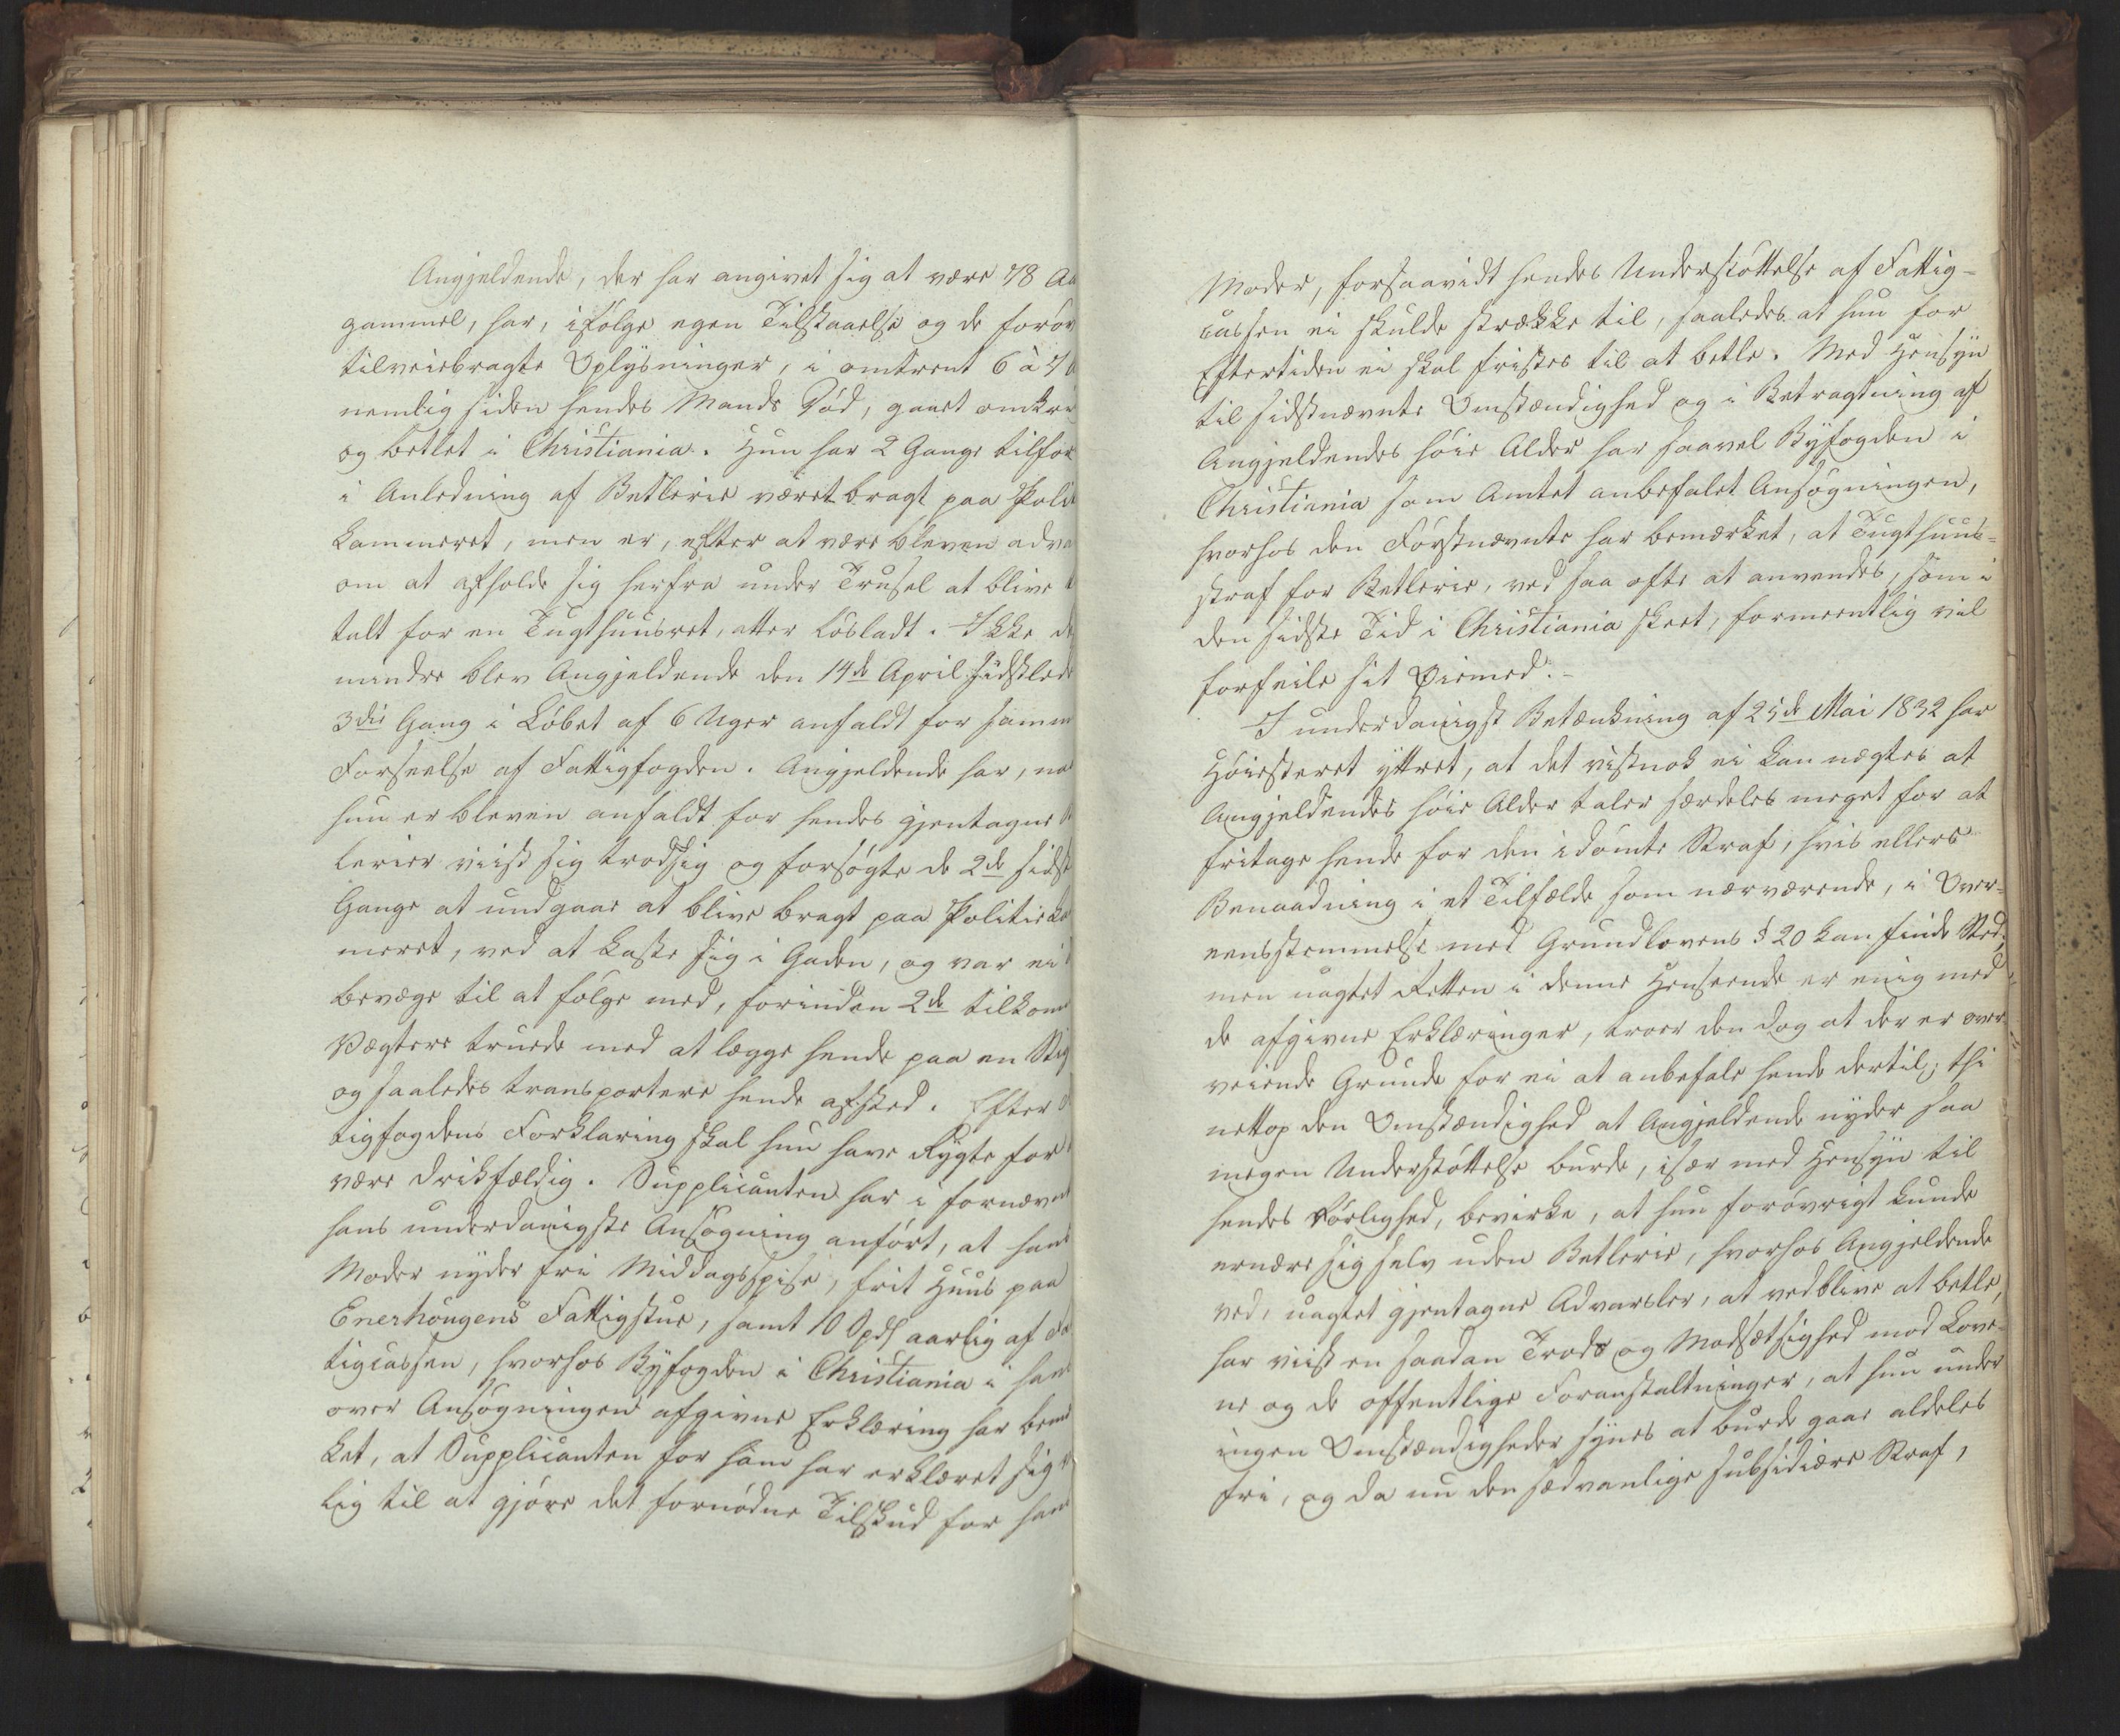 Angjeldende, der har angivet sig at være 78 Aa
gammel, har, ifølge egen Tilstaaelse og de forøv
tilveiebragte Oplysninger, i omtrent 6 à 7 A
nemlig siden hendes Mands Død, gaaet omkri
og betlet i Christiania. Hun har 2 Gange tilfor
i Anledning af Betlerie været bragt paa Polit
kammeret, men er, efter at være bleven adva
om at afholde sig herfra under Trusel at blive t
talt for en Tugthuusret, atter løsladt. Ikke de
mindre blev Angjeldende den 14de April sidstlede
3die Gang i Løbet af 6 Uger anholdt for samm
Forseelse af Fattigfogden. Angjeldende har, na
hun er bleven anholdt for hendes gjentagne B
lerier viist sig trodsig og forsøgte de 2de sidst
Gange at undgaae at blive bragt paa Politieka
meret, ved at kaste sig i Gaden, og var ei t
bevæge til at følge med, forinden 2de tilkom
Vægtere truede med at lægge hende paa en Stig
og saaledes transportere hende afsted. Efter F
tigfogdens Forklaring skal hun have Rygte for
være drikfældig. Supplicanten har i fornævn
hans underdanigste Ansøgning anført, at hans
Moder nyder fri Middagsspise, frit Huus paa
Enerhougens Fattigstue, samt 10 Spdl aarlig af Fa
tigcassen, hvorhos Byfogden i Christiania i hans
over Ansøgningen afgivne Erklæring har bemæ
ket, at Supplicanten for ham har erklæret sig v
lig til at gjøre det fornødne Tilskud for hans
Moder, forsaavidt hendes Understøttelse af Fattig-
cassen ei skulde strække til, saaledes at hun for
Eftertiden ei skal fristes til at betle. Med Hensyn
til sidstnævnte Omstændighed og i Betragtning af
Angjeldendes høie Alder har saavel Byfogden i
Christiania som Amtet anbefalet Ansøgningen,
hvorhos den Førstnævnte har bemærket, at Tugthuus-
straf for Betlerie, ved saa ofte at anvendes, som i
den sidste Tid i Christiania skeet, formeentlig vil
forfeile sit Øiemed.-
I underdanigst Betænkning af 25de Mai 1832 har
Høiesteret yttret, at det vistnok ei kan nægtes at
Angjeldendes høie Alder taler særdeles meget for at
fritage hende for den idømte Straf, hvis ellers
Benaadning i et Tilfælde som nærværende, i Over-
eensstemmelse med Grundlovens § 20 kan finde Sted;
men uagtet Retten i denne Henseende er enig med
de afgivne Erklæringer, troer den dog at der er over-
veiende Grunde for ei at anbefale hende dertil; thi
nettop den Omstændighed at Angjeldende nyder saa
megen Understøttelse burde, især med Hensyn til
hendes Førlighed, bevirke, at hun forøvrigt kunde
ernære sig selv uden Betlerie, hvorhos Angjeldende
ved, uagtet gjentagne Advarsler, at vedblive at betle,
har viist en saadan Trods og Modsætsighed mod Love-
ne og de offentlige Foranstaltninger, at hun under
ingen Omstændigheder synes at burde gaae aldeles
fri, og da nu den sædvanlige subsidiære Straf,